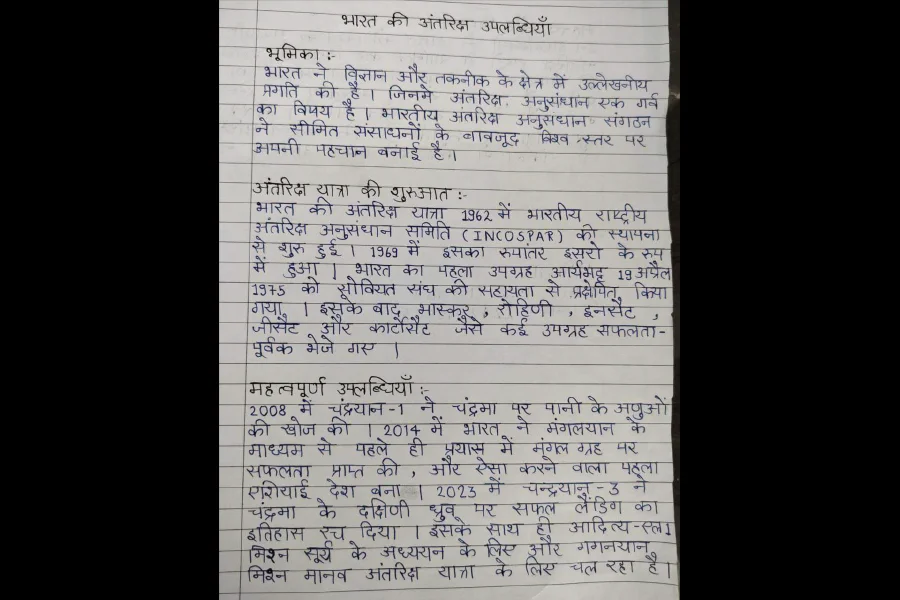 भारत की अंतरिक्ष उपलब्धियाँ
भूमिका :-
भारत ने विज्ञान और तकनीक के क्षेत्र में उल्लेखनीय
प्रगति की है । जिनमे अंतरिक्ष अनुसंधान एक गर्व
का विषय है । भारतीय अंतरिक्ष अनुसधान संगठन
ने सीमित संसाधनों के बावजूद विश्व स्तर पर
अपनी पहचान बनाई है ।
अंतरिक्ष यात्रा की शुरुआत :-
भारत की अंतरिक्ष यात्रा 1962 में भारतीय राष्ट्रीय
अंतरिक्ष अनुसंधान समिति (INCOSPAR) की स्थापना
से शुरु हुई । 1969 में इसका रुपांतर इसरो के रुप
में हुआ । भारत का पहला उपग्रह आर्यभट्ट 19 अप्रैल
1975 को सोवियत संघ की सहायता से प्रक्षेपित किया
गया । इसके बाद भास्कर , रोहिणी , इनसैट ,
जीसैट और कार्टोसैट जैसे कई उपग्रह सफलता-
पूर्वक भेजे गए ।
महत्वपूर्ण उपलब्धियाँ :-
2008 में चंद्रयान-1 ने चंद्रमा पर पानी के अणुओं
की खोज की । 2014 में भारत ने मंगलयान के
माध्यम से पहले ही प्रयास में मंगल ग्रह पर
सफलता प्राप्त की , और ऐसा करने वाला पहला
एशियाई देश बना । 2023 में चन्द्रयान-3 ने
चंद्रमा के दक्षिणी ध्रुव पर सफल लैंडिग का
इतिहास रच दिया । इसके साथ ही आदित्य-एल1
मिशन सूर्य के अध्ययन के लिए और गगनयान
मिशन मानव अंतरिक्ष यात्रा के लिए चल रहा है ।